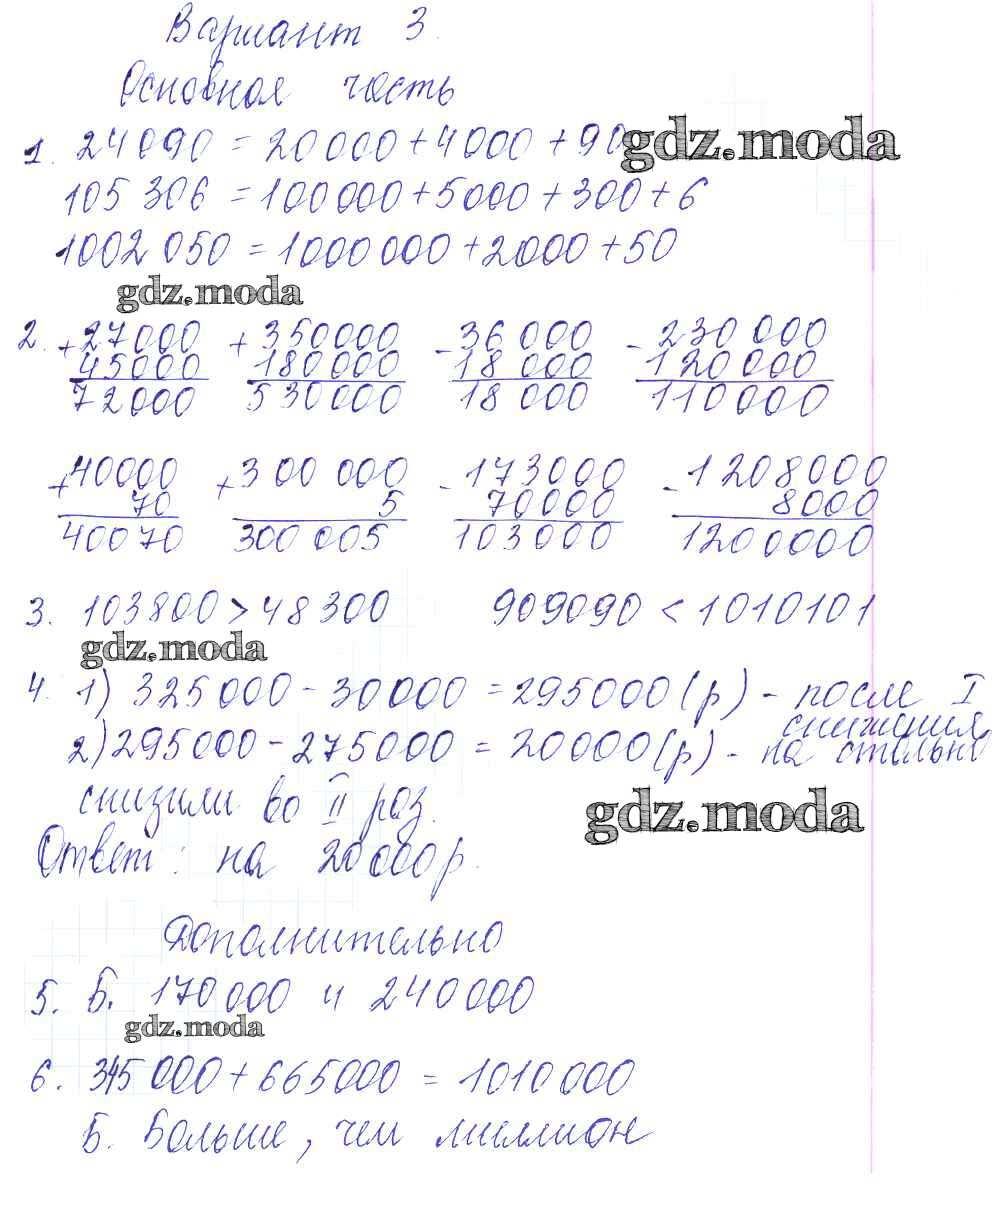 Вариант 3.
Основная часть
1. 24090 = 20000 + 4000 + 90
gdz.moda
105 306 = 100000 + 5000 + 300 + 6
1002 050 = 1000 000 + 2000 + 50
gdz.moda
2. + 27000 + 350000 - 36 000 - 230 000
45000 180 000 18 000 120 000
72000 530000 18 000 110000
+ 40000 + 300 000 - 173000 - 1208000
70 5 70000 8000
40070 300 005 103000 1200000
3. 103800 > 48300 909090 < 1010101
gdz.moda
4. 1) 325000 - 30000 = 295000 (р) - после I
снижения
2) 295000 - 275000 = 20000 (р) - на столько
снизили во II раз.
gdz.moda
Ответ: на 20 000р.
Дополнительно
5. Б. 170 000 и 240000
gdz.moda
6. 345 000 + 665000 = 1010000
Б. Больше, чем миллион